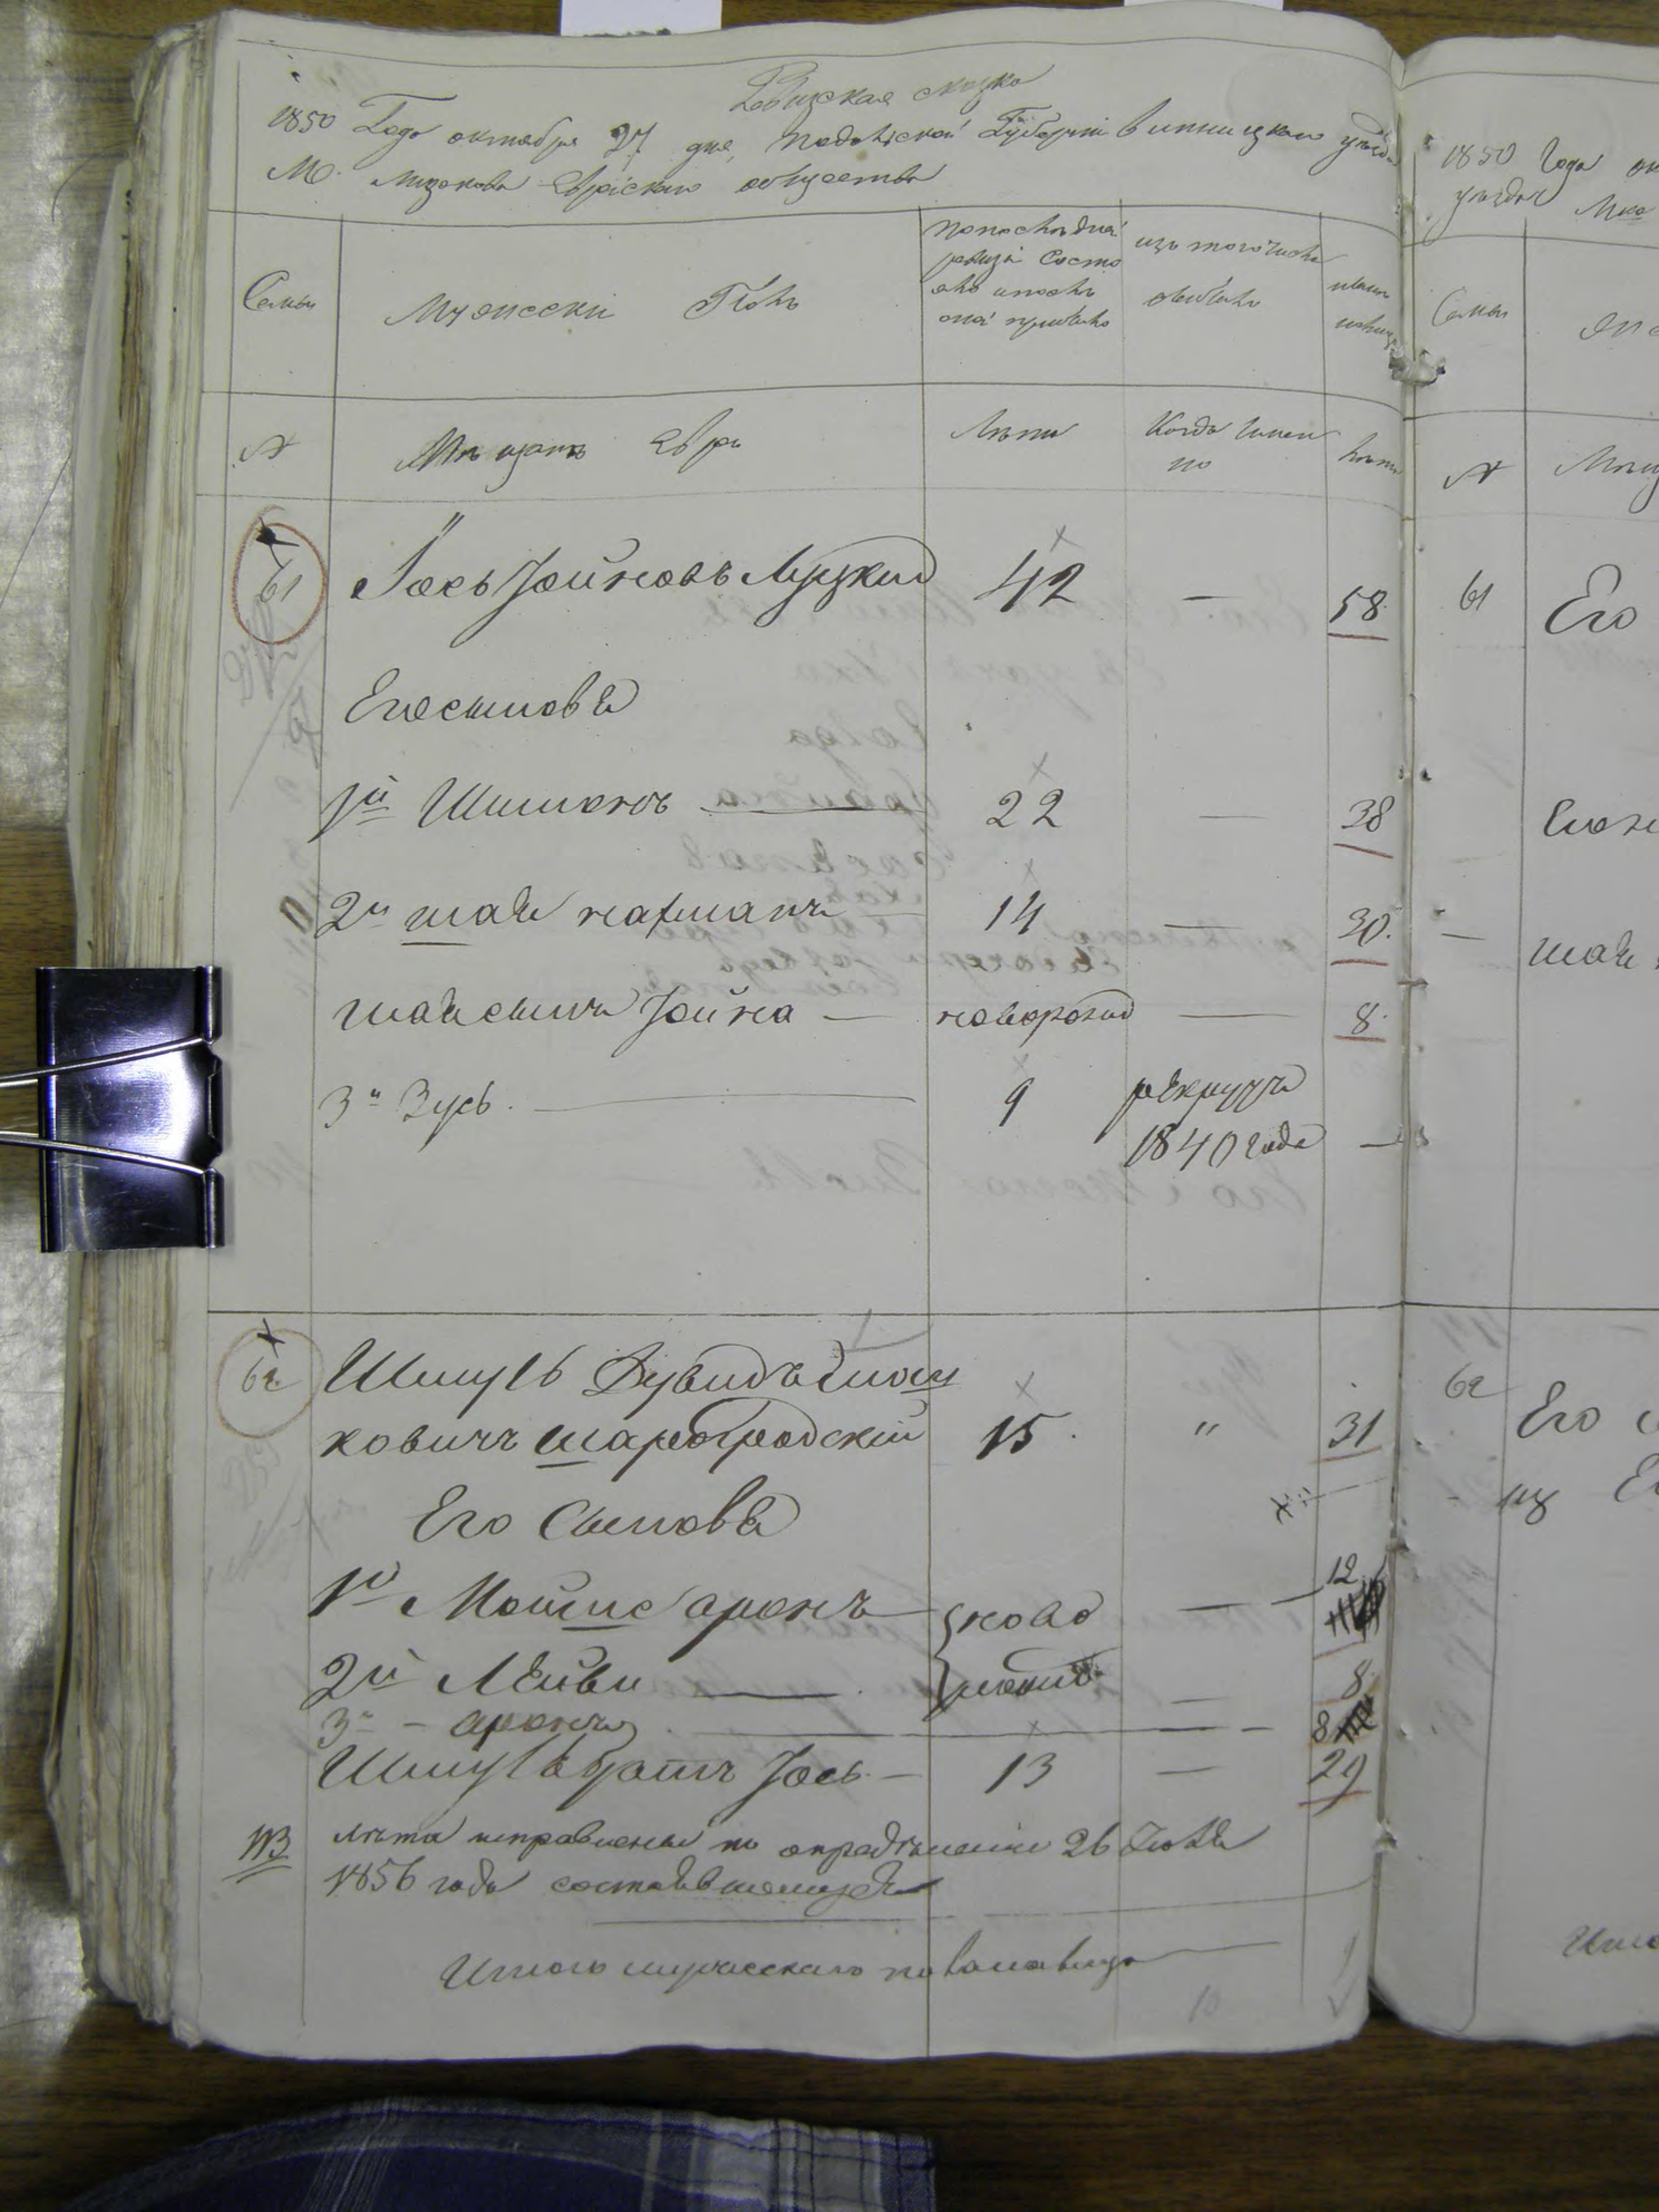 Ревизская сказка
1850 Года октября 27 дня, Подольской Губерніи винницкаго уезда
М. Мизекова Еврейскаго общества
Семьи
Мужескій Полъ
По последней ревизіи состояло и после оной прибыло
изъ того числа выбыло
ныне на лицо
№
Мещане Евреи
Лета
Когда именно
Лета
61 Іось Іойновъ Луцкій 42 — 58
Его сыновья
1й Шимонъ — 22 — 38
2й шая нахманъ 14 — 30.
шаи сынъ Іойна — новорожд — 8.
3й Зусь. — 9 рекрутъ
1840 года —
62 Шмуль Дувидъ Ицковичъ шаргородскій 15. " 31
Его Сыновья
1й Мошне аронъ новорожд — 12
2й Лейви — — 8
3й — аронъ — — 8
Шмуля братъ Іось — 13 — 29
NB лета исправлены по определенію 26 Іюля
1856 года состоявшемуся
Итого мужескаго пола на лицо
1850 Года
уезда
Семьи
№
61 Его
62 Его